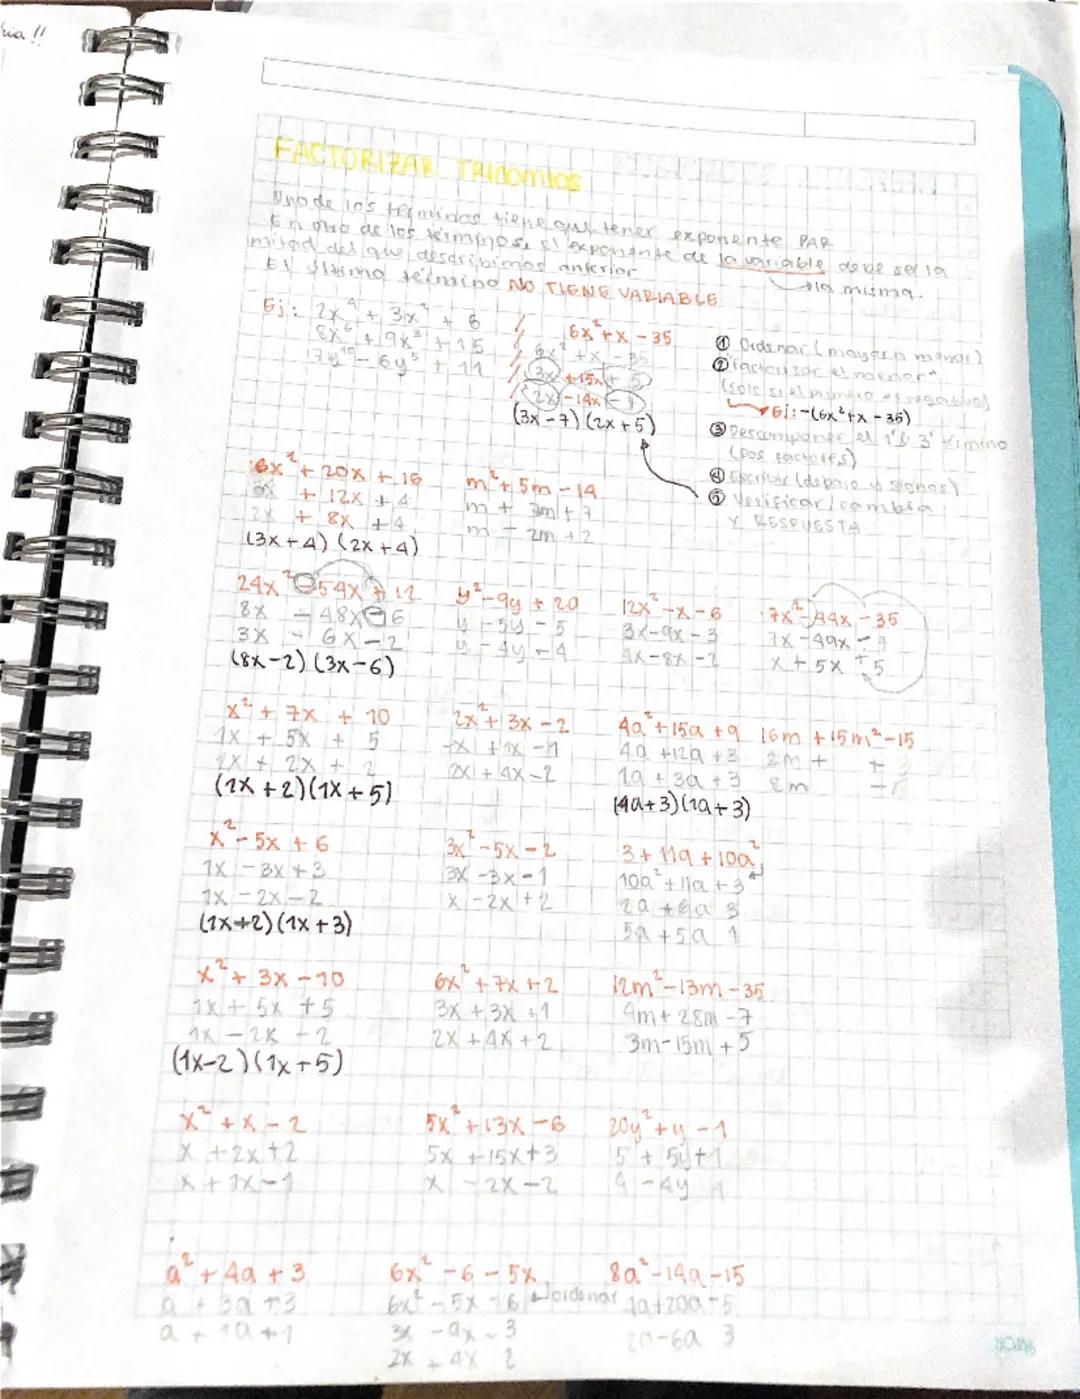 ria!!
FACTORIZAR TRINOMIOS
Uno de los terminos tiene que tener exponente PAR
En otro de los terminos, el exponente de la variable debe ser la
mitad del que describimos anterior → la misma.
El último término NO TIENE VARIABLE
Ej: 2x⁴ + 3x² + 6
8x⁶ + 9x³ + 15
17y¹⁰ - 6y⁵ + 11
6x² + x - 35
6x² + x - 35
3x +15x + 5
2x -14x - 7
(3x - 7) (2x + 5)
① Ordenar (mayor a menor)
② Factorizar el menor
(solo si el primero es negativo)
Ej: -(6x² + x - 35)
③ Descomponer el 1° & 3° término
(Dos factores)
④ Escribir (debajo y signos)
⑤ Verificar / cambia
Y RESPUESTA
6x² + 20x + 16
+ 12x + 4
2x + 8x + 4
(3x + 4) (2x + 4)
m² + 5m - 14
m + 7m + 7
m - 2m + 2
24x² - 54x + 12
8x - 48x - 6
3x - 6x - 2
(8x - 2) (3x - 6)
y² - 9y + 20
y - 5y - 5
y - 4y - 4
12x² - x - 6
3x - 9x - 3
4x - 8x - 2
7x² - 44x - 35
7x - 49x - 7
x + 5x + 5
x² + 7x + 10
1x + 5x + 5
1x + 2x + 2
(1x + 2)(1x + 5)
2x² + 3x - 2
-x + 1x - 1
2x + 4x - 2
4a² + 15a + 9
4a + 12a + 3
1a + 3a + 3
(4a + 3)(1a + 3)
16m + 15m² - 15
2m + + 3
8m
x² - 5x + 6
1x - 3x + 3
1x - 2x - 2
(1x + 2) (1x + 3)
3x² - 5x - 2
3x - 3x - 1
x - 2x + 2
3 + 11a + 10a²
10a² + 11a + 3
2a + 6a 3
5a + 5a 1
x² + 3x - 10
1x + 5x + 5
1x - 2x - 2
(1x - 2)(1x + 5)
6x² + 7x + 2
3x + 3x + 1
2x + 4x + 2
12m² - 13m - 35
4m + 28m - 7
3m - 15m + 5
x² + x - 2
x + 2x + 2
x + 1x - 1
5x² + 13x - 6
5x + 15x + 3
x - 2x - 2
20y² + y - 1
5 + 5y + 1
4 - 4y 1
a² + 4a + 3
a + 3a + 3
a + 1a + 1
6x² - 6 - 5x
6x² - 5x - 6 ordenar
3x - 9x - 3
2x + 4x 2
8a² - 14a - 15
4a + 20a - 5
2a - 6a 3